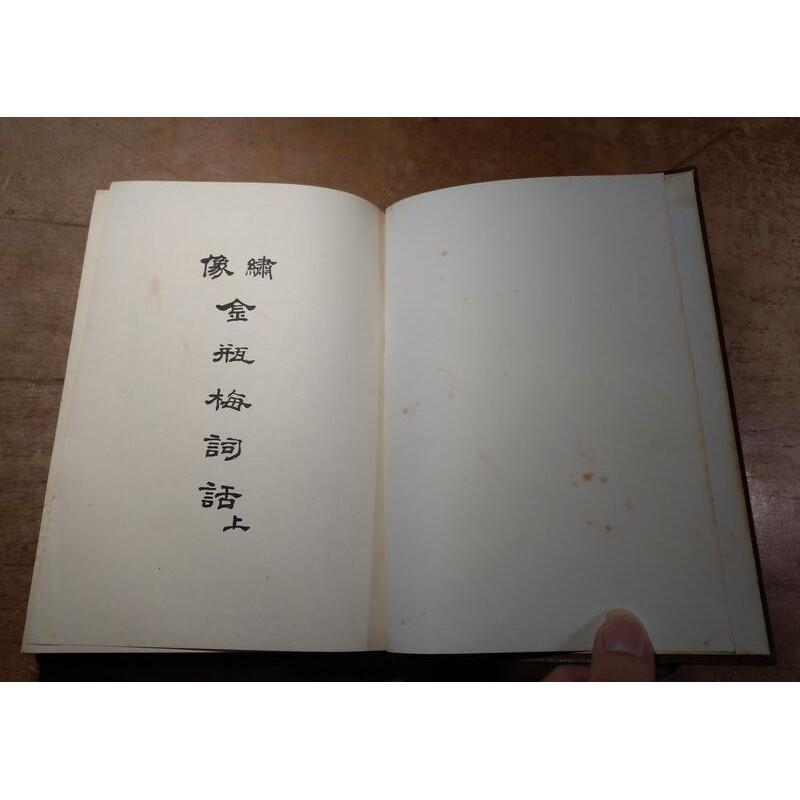 繡像
金瓶梅詞話
上